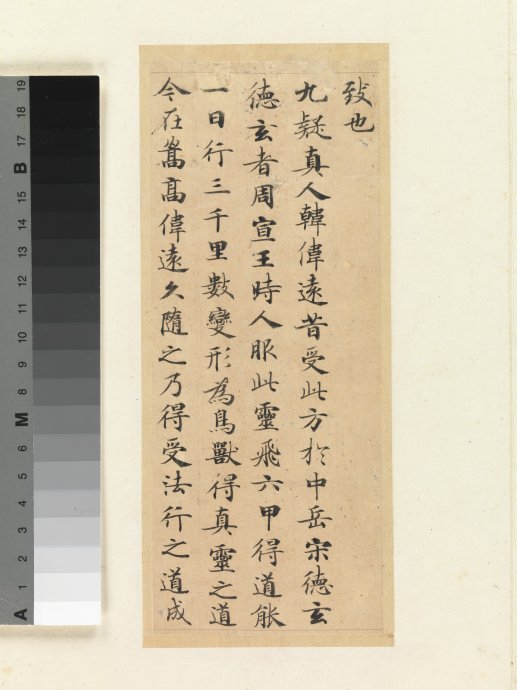 致也
九疑真人韓偉遠昔受此方於中岳宋德玄
德玄者周宣王時人服此靈飛六甲得道能
一日行三千里數變形為鳥獸得真靈之道
今在嵩高偉遠久隨之乃得受法行之道成
A 1 2 3 4 5 6 M 8 9 10 11 12 13 14 15 B 17 18 19